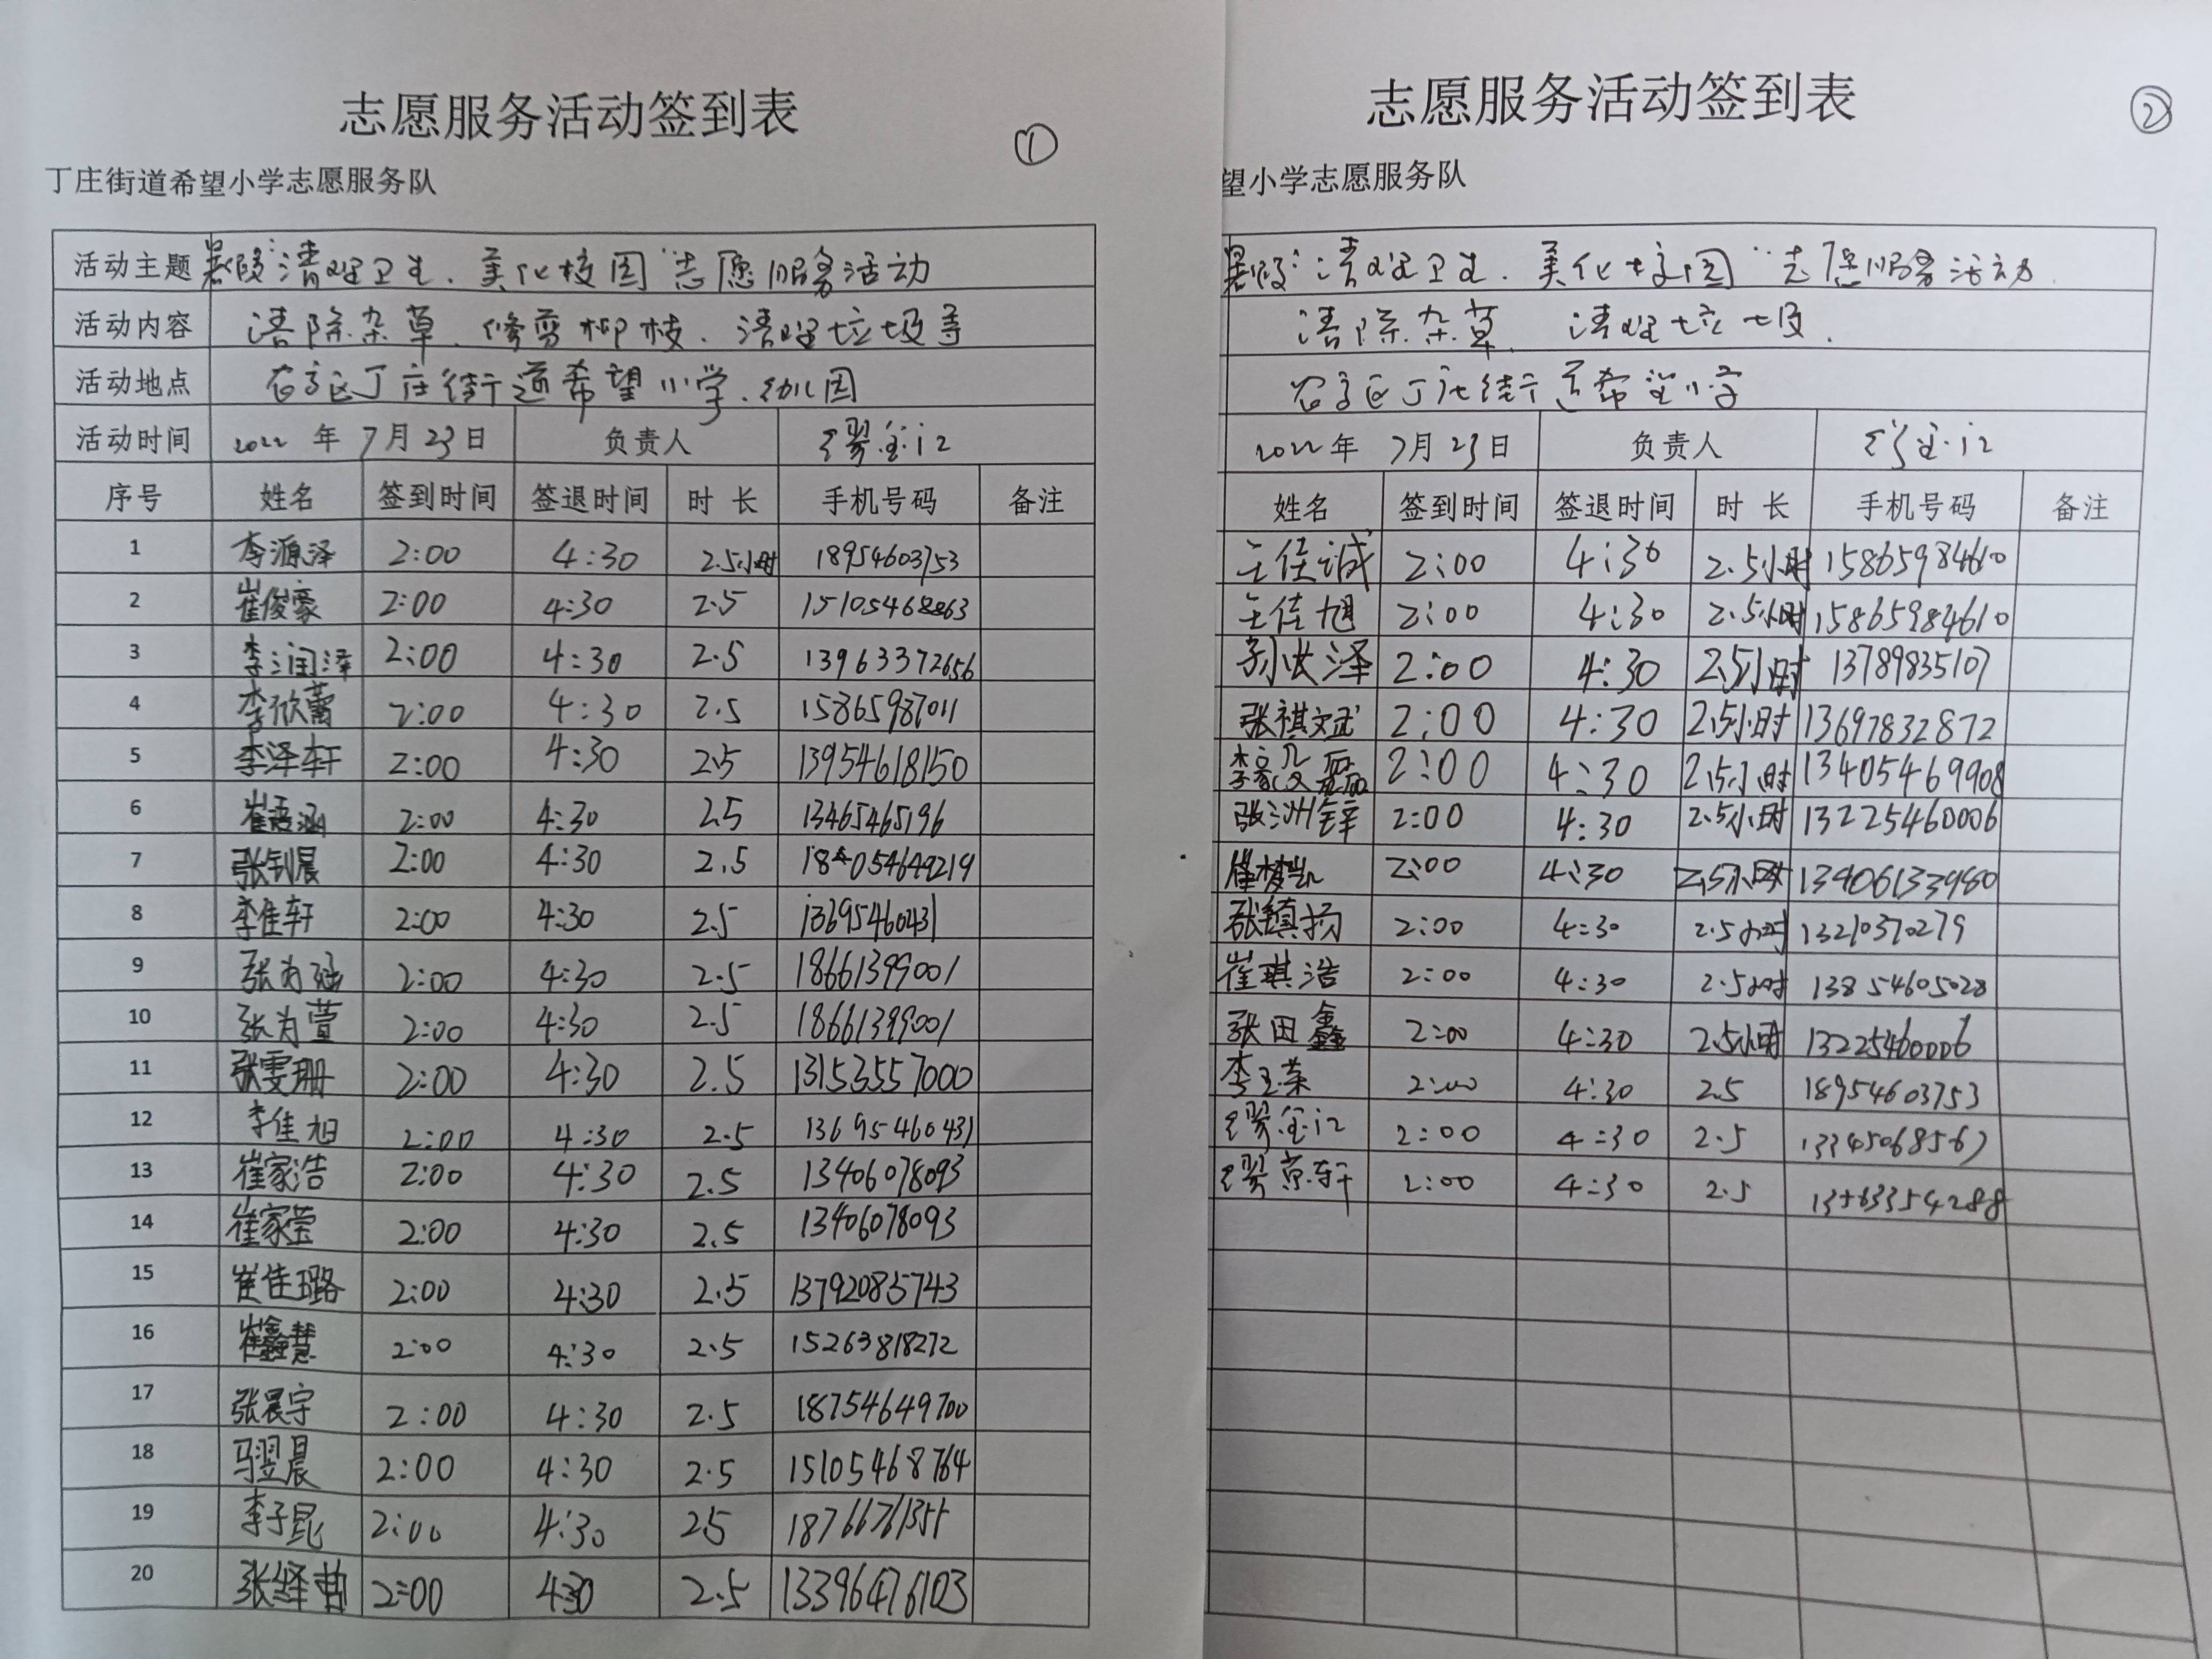 志愿服务活动签到表
①
丁庄街道希望小学志愿服务队
活动主题 暑假"清理卫生、美化校园"志愿服务活动
活动内容 清除杂草、修剪柳枝、清理垃圾等
活动地点 农高区丁庄街道希望小学、幼儿园
活动时间 2022年7月23日 负责人
序号 姓名 签到时间 签退时间 时长 手机号码 备注
1 李源泽 2:00 4:30 2.5小时 18954603753
2 崔俊豪 2:00 4:30 2.5 15105468863
3 李润泽 2:00 4:30 2.5 13963372656
4 李欣蕾 2:00 4:30 2.5 15865987011
5 李泽轩 2:00 4:30 2.5 13954618150
6 崔语涵 2:00 4:30 2.5 13465465196
7 张钊晨 2:00 4:30 2.5
8 李佳轩 2:00 4:30 2.5 13695460431
9 张为 2:00 4:30 2.5 18661399001
10 张为萱 2:00 4:30 2.5 18661399001
11 张雯珊 2:00 4:30 2.5 13153557000
12 李佳旭 2:00 4:30 2.5 13695460431
13 崔家浩 2:00 4:30 2.5 13406078093
14 崔家莹 2:00 4:30 2.5 13406078093
15 崔佳璐 2:00 4:30 2.5 13792085743
16 崔鑫慧 2:00 4:30 2.5 15263818272
17 张晨宇 2:00 4:30 2.5 18754649700
18 马翌晨 2:00 4:30 2.5 15105468764
19 李子昆 2:00 4:30 2.5
20 张绎 2:00 4:30 2.5 13396476103
志愿服务活动签到表
②
望小学志愿服务队
暑假"清理卫生、美化校园"志愿服务活动
清除杂草、清理垃圾
农高区丁庄街道希望小学
2022年7月23日 负责人
姓名 签到时间 签退时间 时长 手机号码 备注
王佳诚 2:00 4:30 2.5小时 15865984610
王佳旭 2:00 4:30 2.5小时 15865984610
泽 2:00 4:30 2.5小时 13789835107
张祺斌 2:00 4:30 2.5小时 13697832872
2:00 4:30 2.5小时 13405469908
张洲锌 2:00 4:30 2.5小时 13225460006
崔梦凯 2:00 4:30 2.5小时 13406133980
张镇扬 2:00 4:30 2.5小时 13210370279
崔琪浩 2:00 4:30 2.5小时 13854605028
张田鑫 2:00 4:30 2.5小时 13225460006
李玉荣 2:00 4:30 2.5 18954603753
2:00 4:30 2.5 13345068567
2:00 4:30 2.5 13563354288